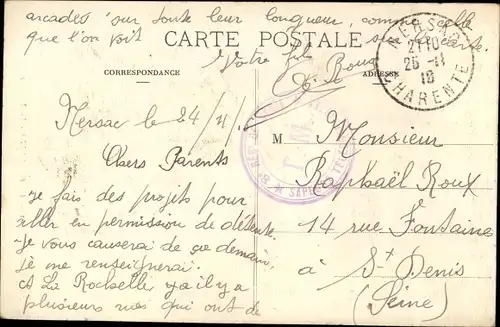 arcades sur toute leur longueur, comme celle
que l'on voit sur cette carte.
CARTE POSTALE
Votre fils
Roux
CORRESPONDANCE
ADRESSE
NERSAC
21 10
25 -11
18
CHARENTE
Nersac le 24/11/
Chers Parents
je fais des projets pour
aller en permission de détente.
Je vous causerai de ça demain,
je me renseignerai.
A La Rochelle, y a il y a
plusieurs rues qui ont de
M. Monsieur
Raphaël Roux
14 rue Fontaine
à St Denis
(Seine)